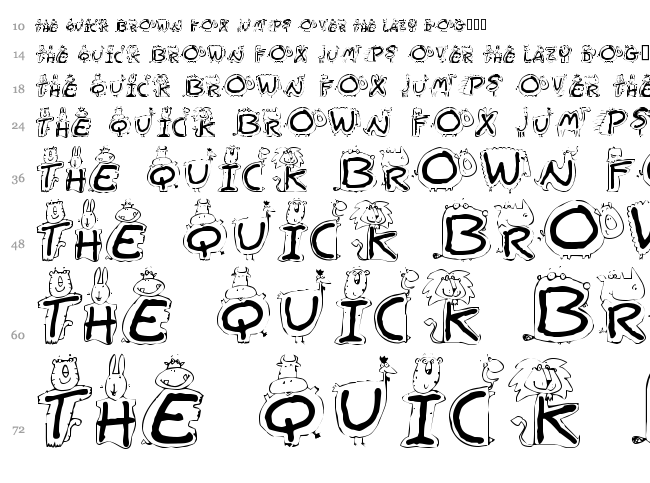 10 THE QUICK BROWN FOX JUMPS OVER THE LAZY DOG
14 THE QUICK BROWN FOX JUMPS OVER THE LAZY DOG
18 THE QUICK BROWN FOX JUMPS OVER THE
24 THE QUICK BROWN FOX JUMPS
36 THE QUICK BROWN FO
48 THE QUICK BROW
60 THE QUICK BR
72 THE QUICK